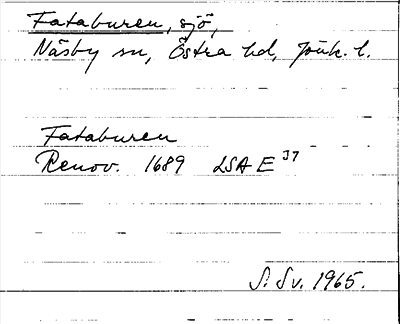 Fataburen, sjö,
Näsby sn, Östra hd, Jönk. l.
Fataburen
Renov. 1689 LSA E 37
S. Sv. 1965.